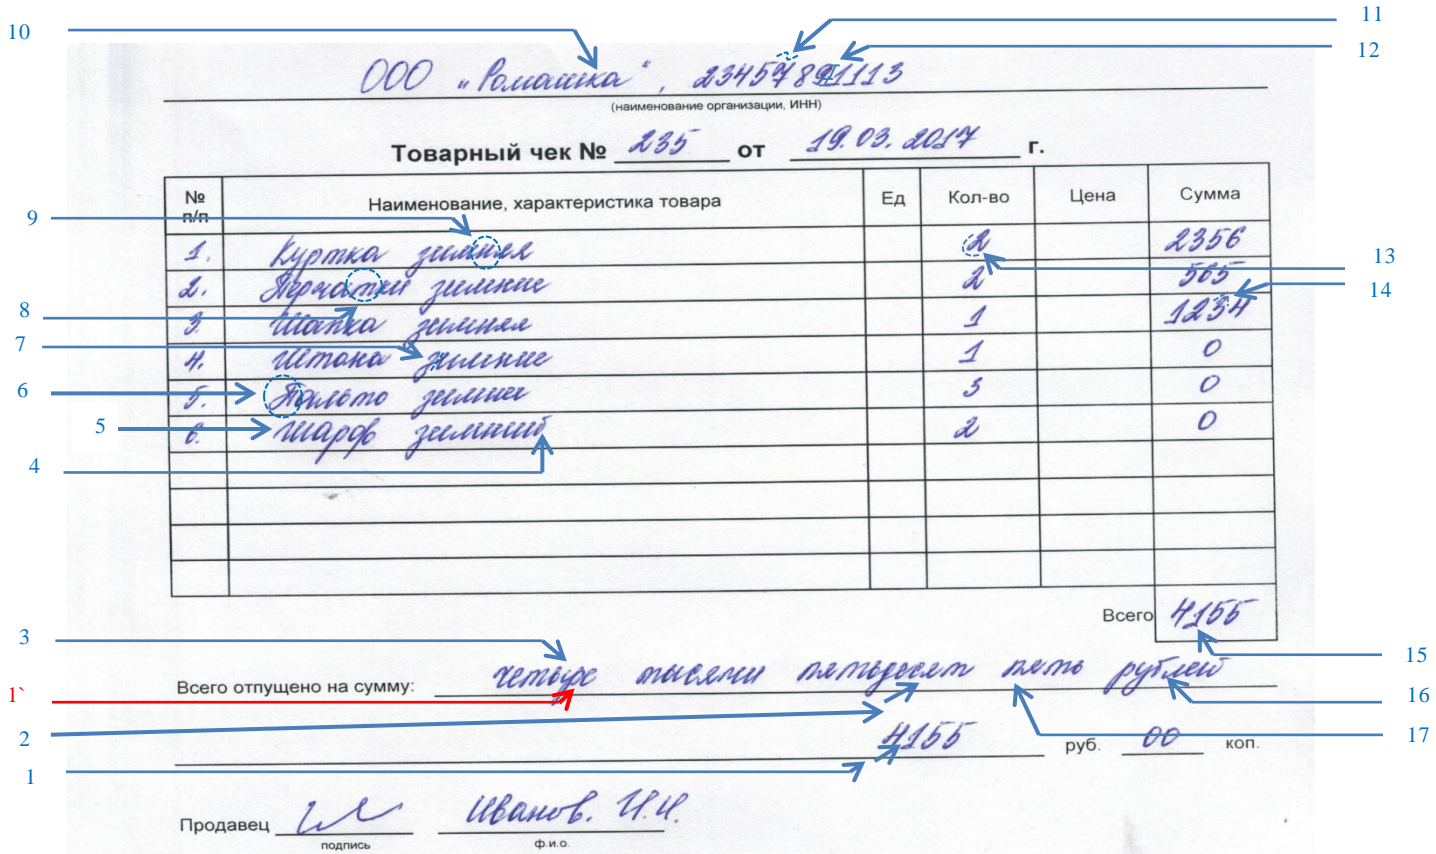 10 11
12
ООО „Ромашка“, 23457891113
(наименование организации, ИНН)
Товарный чек № 235 от 19.03.2017 г.
№ п/п Наименование, характеристика товара Ед Кол-во Цена Сумма
9
1. Куртка зимняя 2 2356
13
2. Перчатки зимние 2 565
14
8
3. Шапка зимняя 1 1234
7
4. Штана зимние 1 0
6
5. Пальто зимнее 3 0
5
6. Шарф зимний 2 0
4
Всего 4155
3 15
Всего отпущено на сумму: четыре тысячи пятьдесят пять рублей
1` 16
2 17
4155 руб. 00 коп.
1
Продавец Иванов. И.И.
подпись ф.и.о.